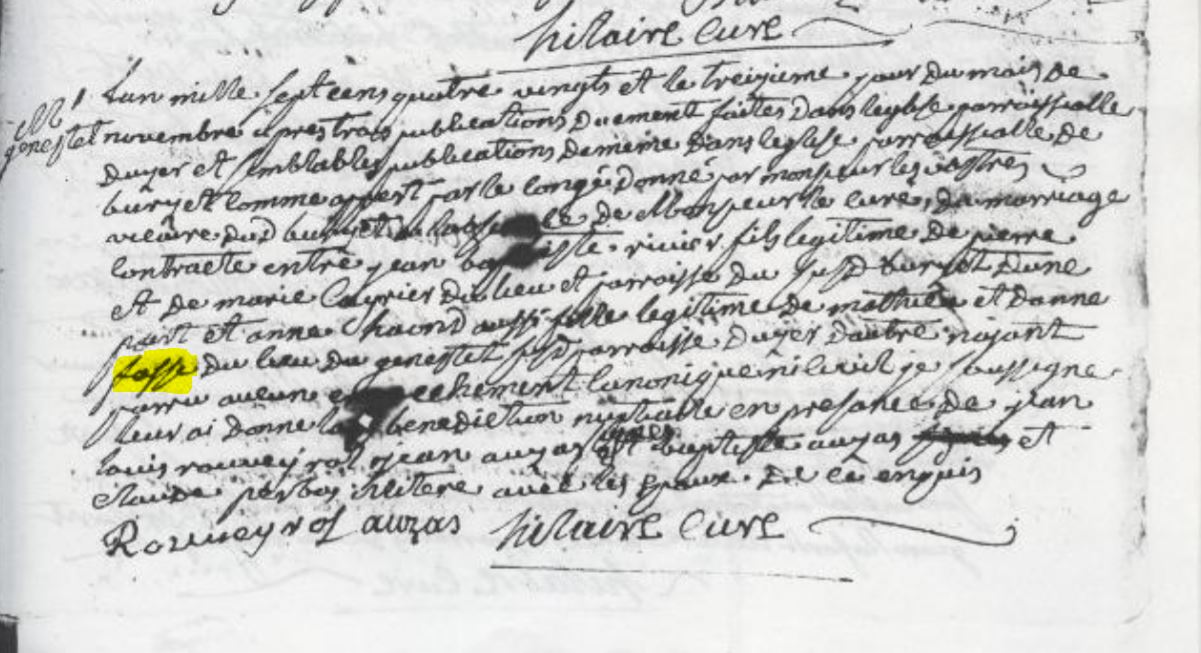 hilaire Cure
M
genestet
Lan mille sept cens quatre vingts et le treizieme jour du mois de
novembre apres trois publications duement faites dans leglise parroissialle
duzer et semblables publications de meme dans leglise parroissialle de
burzet comme appert par le congé donné par monsieur
vicaire dud burzet de Monsieur le curé, du marriage
contracté entre jean rivier fils legitime de pierre
et de marie du lieu et parroisse du susd burzet dune
part et anne aussi fille legitime de mathieu et danne
du lieu du genestet susd parroisse duzer dautre nayant
parru aucun canonique ni civil je soussigne
leur ai donne la benediction nuptialle en presance de jean
louis rouveyrol jean auzas baptiste auzas et
claude illiteré avec les Epoux. De ce enquis
Rouveyrol auzas hilaire Cure